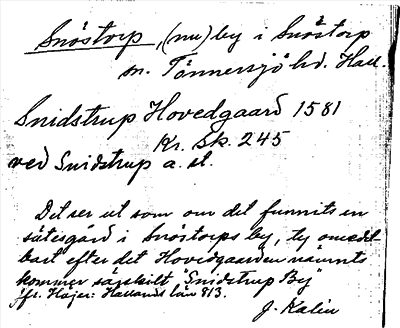 Snöstorp, (nu) by i Snöstorp
sn. Tönnersjö hd. Hall.
Snidstrup Hovedgaard 1581
Kr. Sk. 245
ved Snidstrup a. st.
Det ser ut som om det funnits en
sätesgård i Snöstorps by, ty omedel-
bart efter det Hovidgaarden nämnts
kommer särskilt "Snidstrup By"
jfr. Höjer: Hallands län 813.
J. Kalén